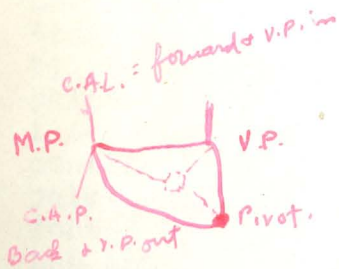 C.A.L. = forward & V.P. in
M.P. V.P.
C.A.P. Pivot.
Back & V.P. out